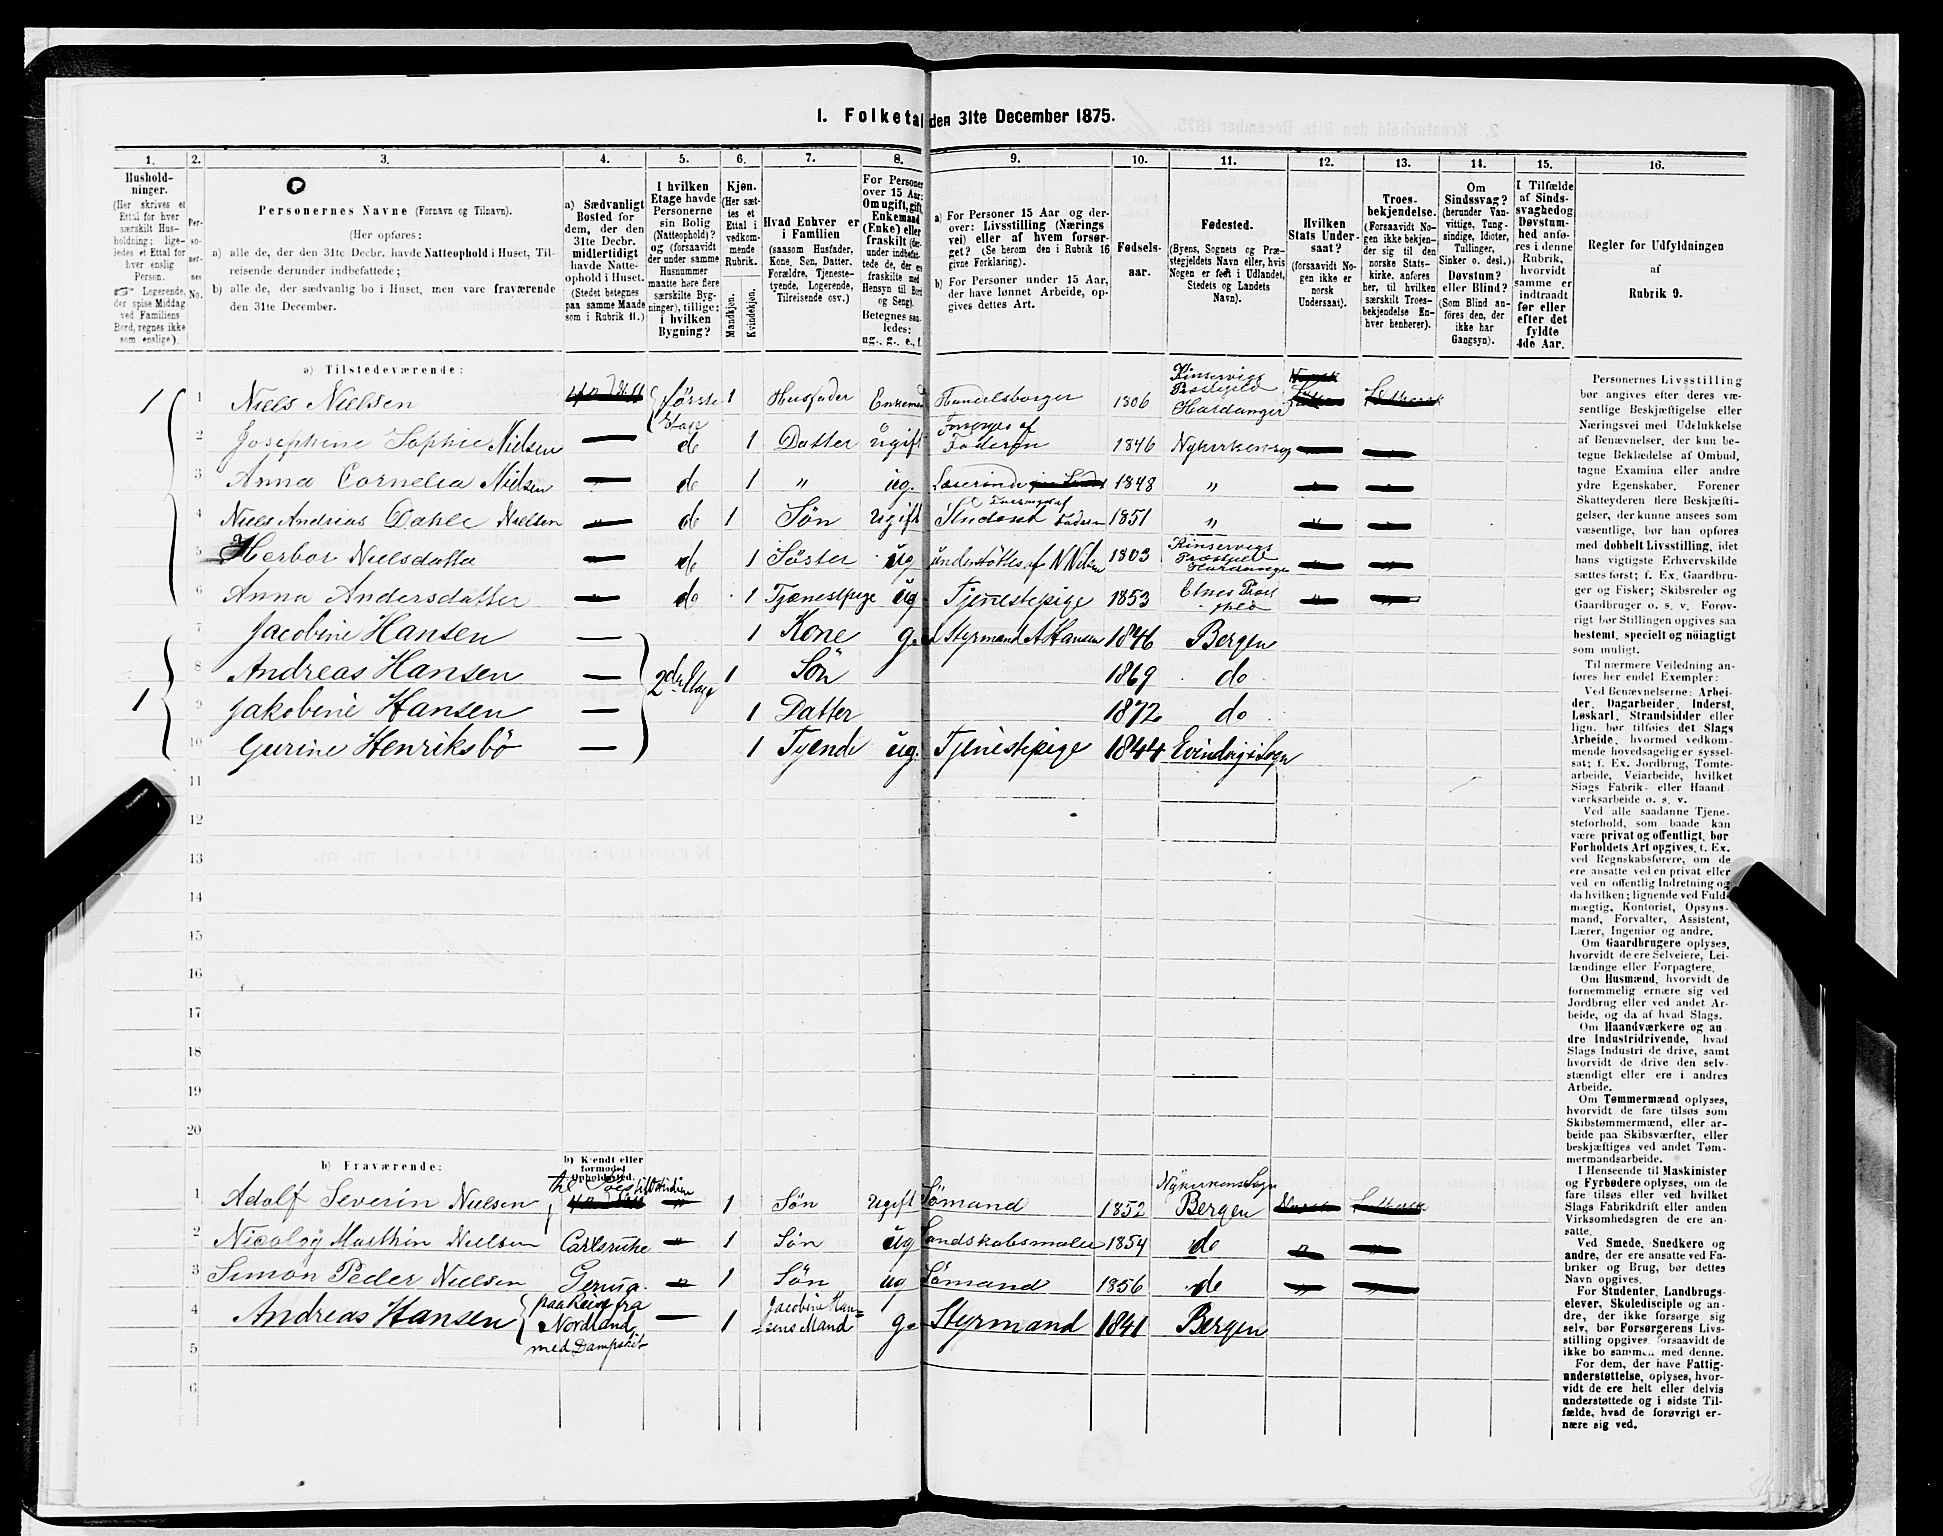 1. Folketal den 31te December 1875.
1.
2.
3.
4.
5.
6.
7.
8.
9.
10.
11.
12.
13.
14.
15.
16.
Hushold-
ninger.
(Her skrives et
Ettal for hver
særskilt Hus-
holdning; lige-
ledes et Ettal for
hver enslig
Person.
☞ Logerende,
der spise Middag
ved Familiens
Bord, regnes ikke
som enslige).
Per-
so-
ner-
nes
No.
Personernes Navne (Fornavn og Tilnavn).
(Her opføres:
a) alle de, der den 31te Decbr. havde Natteophold i Huset, Til-
reisende derunder indbefattede;
b) alle de, der sædvanlig bo i Huset, men vare fraværende
den 31te December.
a) Sædvanligt
Bosted for
dem, der den
31te Decbr.
midlertidigt
havde Natte-
ophold i Huset.
(Stedet betegnes
paa samme Maade
som i Rubrik 11.)
I hvilken
Etage havde
Personerne
sin Bolig
(Natteophold)?
og (forsaavidt
der under samme
Husnummer
maatte høre flere
særskilte Byg-
ninger), tillige:
i hvilken
Bygning?
Kjøn.
(Her sæt-
tes et
Ettal i
vedkom-
mende
Rubrik.
Mandkjøn.
Kvindekjøn.
Hvad Enhver er
i Familien
(saasom Husfader,
Kone, Søn, Datter,
Forældre, Tjeneste-
tyende, Logerende,
Tilreisende osv.)
For Personer
over 15 Aar:
Om ugift, gift,
Enkemand
(Enke) eller
fraskilt (der-
under indbefat-
tede de, der ere
fraskilte med
Hensyn til Bord
og Seng).
Betegnes saa-
ledes:
ug., g., e., f.
a) For Personer 15 Aar og der-
over: Livsstilling (Nærings-
vei) eller af hvem forsør-
get? (Se herom den i Rubrik 16
givne Forklaring).
b) For Personer under 15 Aar,
der have lønnet Arbeide, op-
gives dettes Art.
Fødsels-
aar.
Fødested.
(Byens, Sognets og Præ-
stegjeldets Navn eller, hvis
Nogen er født i Udlandet,
Stedets og Landets
Navn).
Hvilken
Stats Under-
saat?
(forsaavidt No-
gen ikke er
norsk
Undersaat).
Troes-
bekjendelse.
(Forsaavidt No-
gen ikke bekjen-
der sig til den
norske Stats-
kirke, anføres
her, til hvilken
særskilt Troes-
bekjendelse En-
hver henhører).
Om
Sindssvag?
(herunder Van-
vittige, Tung-
sindige, Idioter,
Tullinger,
Sinker o. desl.)
Døvstum?
eller Blind?
(Som Blind an-
føres den, der
ikke har
Gangsyn).
I Tilfælde
af Sinds-
svaghed og
Døvstum-
hed anfø-
res i denne
Rubrik,
hvorvidt
samme er
indtraadt
før eller
efter det
fyldte
4de Aar.
Regler for Udfyldningen
af
Rubrik 9.
a) Tilstedeværende:
1 1 Niels Nielsen første Etage 1 Husfader Enkemand Handelsborger 1806 Kinservigs Præstegjeld Hardanger
2 Josephine Sophie Nielsen — do 1 Datter ugift Forsørges af Faderen 1846 Nykirkensog
3 Anna Cornelia Nielsen do 1 " ug. Lærerinde 1848 "
4 Niels Andreas Dahle Nielsen do 1 Søn Ugift Student Forsørges af Faderen 1851 "
5 Herbor Nielsdatter do 1 Søster ug understøttes af N Nielsen 1803 Kinservigs Præstgjeld Hardanger
6 Anna Andersdatter do 1 Tjenestpige ug Tjenestepige 1853 Etnes Præstgjeld
7 Jacobine Hansen — 1 Kone g. Styrmand A Hansen 1846 Bergen
8 Andreas Hansen — 2den Etage 1 Søn 1869 do
1 9 Jakobine Hansen — 1 Datter 1872 do
10 Gurine Henriksbø — 1 Tyende ug. Tjenestepige 1844 Evindvig i Sogn
11
12
13
14
15
16
17
18
19
20
b) Fraværende:
b) Kjendt eller
formodet
Opholdssted.
1 Adolf Severin Nielsen 1 Søn Ugift Sømand 1852 Nykirkens Sogn Bergen
2 Nicolay Marthin Nielsen Carlsruhe 1 Søn ug Landskabsmaler 1854 do
3 Simon Peder Nielsen Genua 1 Søn ug Sømand 1856 do
4 Andreas Hansen paa Reise fra Nordland med Dampskib — 1 Jacobine Hansens Mand g. Styrmand 1841 Bergen
5
6
Personernes Livsstilling
bør angives efter deres væ-
sentlige Beskjæftigelse eller
Næringsvei med Udelukkelse
af Benævnelser, der kun be-
tegne Beklædelse af Ombud,
tagne Examina eller andre
ydre Egenskaber. Forener
Skatteyderen flere Beskjæfti-
gelser, der kunne ansees som
væsentlige, bør han opføres
med dobbelt Livsstilling, idet
hans vigtigste Erhvervskilde
sættes først; f. Ex. Gaardbru-
ger og Fisker; Skibsreder og
Gaardbruger o. s. v. Forøv-
rigt bør Stillingen opgives saa
bestemt, specielt og nøiagtigt
som muligt.
Til nærmere Veiledning an-
føres her endel Exempler:
Ved Benævnelserne: Arbei-
der, Dagarbeider, Inderst,
Løskarl, Strandsidder eller
lign. bør tilføies det Slags
Arbeide, hvormed vedkom-
mende hovedsagelig er syssel-
sat; f. Ex. Jordbrug, Tomte-
arbeide, Veiarbeide, hvilket
Slags Fabrik- eller Haand-
værksarbeide o. s. v.
Ved alle saadanne Tjene-
steforhold, som baade kan
være privat og offentligt, bør
Forholdets Art opgives, f. Ex.
ved Regnskabsførere, om de
ere ansatte ved en privat eller
ved en offentlig Indretning og
da hvilken; lignende ved Fuld-
mægtig, Kontorist, Opsyns-
mand, Forvalter, Assistent,
Lærer, Ingeniør og andre.
Om Gaardbrugere oplyses,
hvorvidt de ere Selveiere, Lei-
lændinge eller Forpagtere.
Om Husmænd, hvorvidt de
fornemmelig ernære sig ved
Jordbrug eller ved andet Ar-
beide, og da af hvad Slags.
Om Haandværkere og an-
dre Industridrivende, hvad
Slags Industri de drive, samt
hvorvidt de drive den selv-
stændigt eller ere i andres
Arbeide.
Om Tømmermænd oplyses,
hvorvidt de fare tilsøs som
Skibstømmermænd, eller ar-
beide paa Skibsværfter, eller
beskjæftiges ved andet Tøm-
mermandsarbeide.
I Henseende til Maskinister
og Fyrbødere oplyses, om de
fare tilsøs eller ved hvilket
Slags Fabrikdrift eller anden
Virksomhedsgren de ere an-
satte.
Ved Smede, Snedkere og
andre, der ere ansatte ved Fa-
briker og Brug, bør dettes
Navn opgives.
For Studenter, Landbrugs-
elever, Skoledisciple og an-
dre, der ikke forsørge sig
selv, bør Forsørgerens Livs-
stilling opgives, forsaavidt de
ikke bo sammen med denne.
For dem, der have Fattig-
understøttelse, oplyses, hvor-
vidt de ere helt eller delvis
understøttede og i sidste Til-
fælde, hvad de forøvrigt er-
nære sig ved.